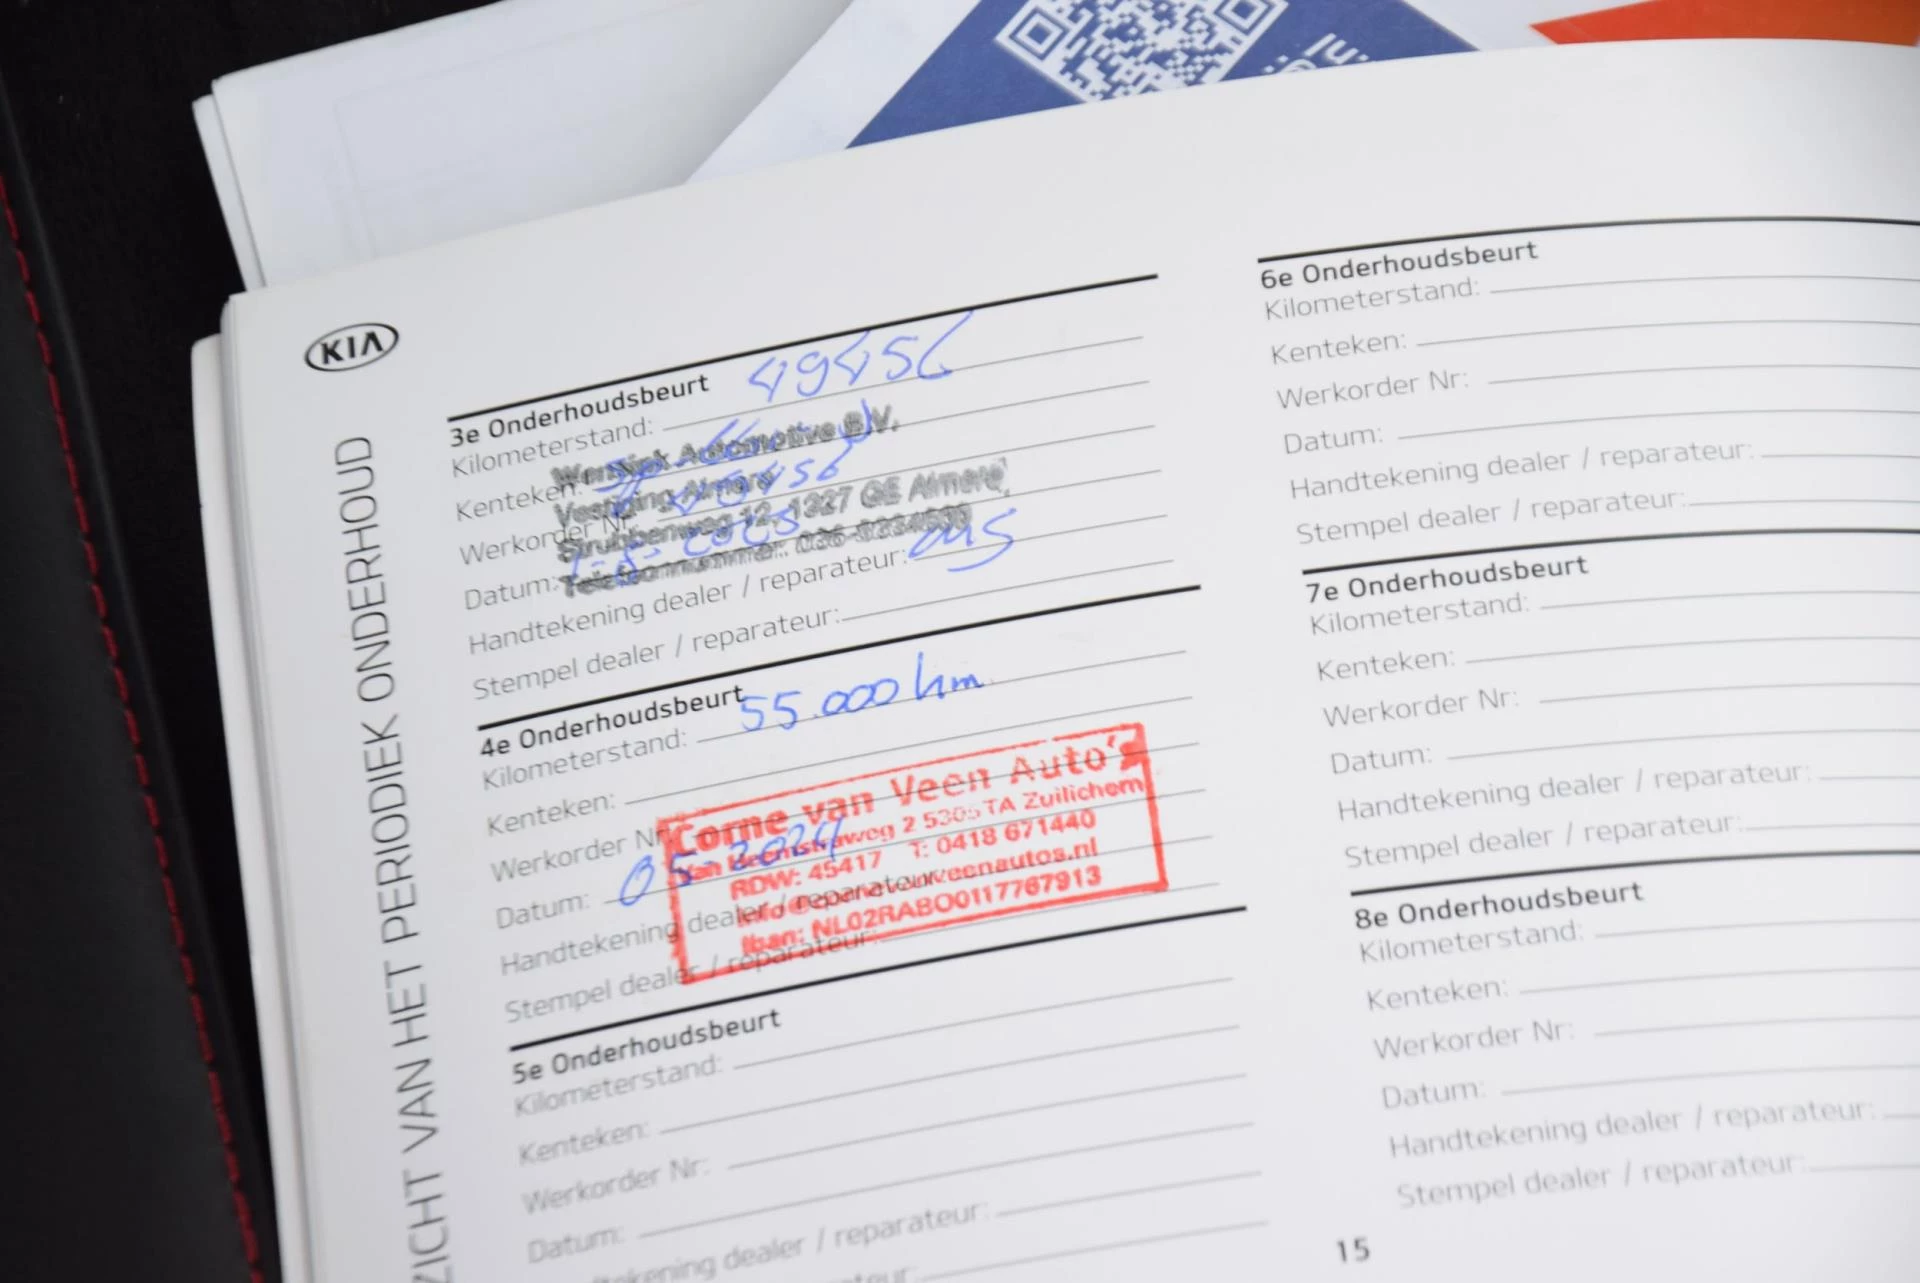 KIA
ZICHT VAN HET PERIODIEK ONDERHOUD
3e Onderhoudsbeurt
Kilometerstand:
Kenteken:
Werkorder Nr:
Datum:
Handtekening dealer / reparateur:
Stempel dealer / reparateur:
Automotive B.V.
Vestiging Almere
Strubbenweg 12, 1327 GE Almere
Telefoonnummer:
4e Onderhoudsbeurt
Kilometerstand: 55.000 km
Kenteken:
Werkorder Nr:
Datum: 05-2024
Handtekening dealer / reparateur:
Stempel dealer / reparateur:
Corne van Veen Auto's
2 5305 TA Zuilichem
RDW: 45417 T: 0418 671440
Iban: NL02RABO0117767913
5e Onderhoudsbeurt
Kilometerstand:
Kenteken:
Werkorder Nr:
Datum:
Handtekening dealer / reparateur:
6e Onderhoudsbeurt
Kilometerstand:
Kenteken:
Werkorder Nr:
Datum:
Handtekening dealer / reparateur:
Stempel dealer / reparateur:
7e Onderhoudsbeurt
Kilometerstand:
Kenteken:
Werkorder Nr:
Datum:
Handtekening dealer / reparateur:
Stempel dealer / reparateur:
8e Onderhoudsbeurt
Kilometerstand:
Kenteken:
Werkorder Nr:
Datum:
Handtekening dealer / reparateur:
Stempel dealer / reparateur:
15